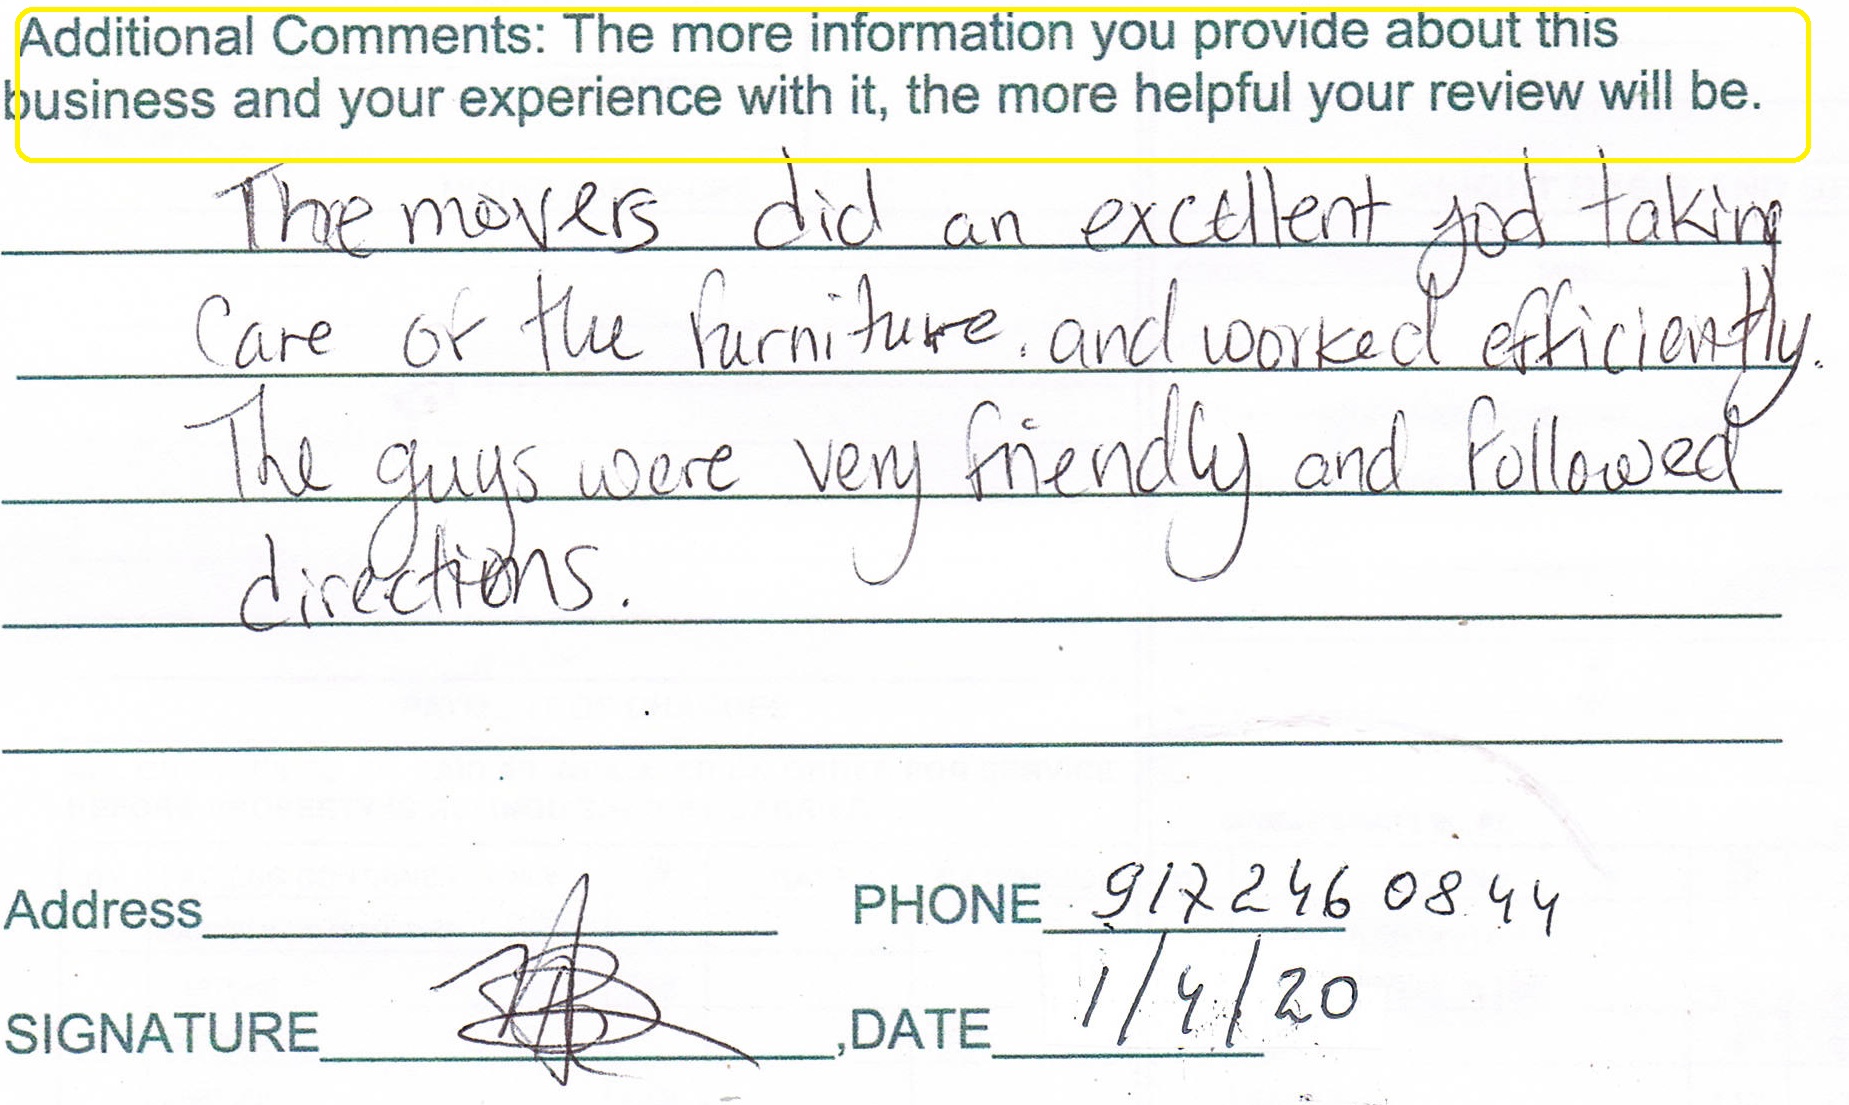 Additional Comments: The more information you provide about this
business and your experience with it, the more helpful your review will be.
The movers did an excellent jod taking
care of the furniture. and worked efficiently.
The guys were very friendly and followed
directions.
Address PHONE 917 246 0844
SIGNATURE ,DATE 1/4/20